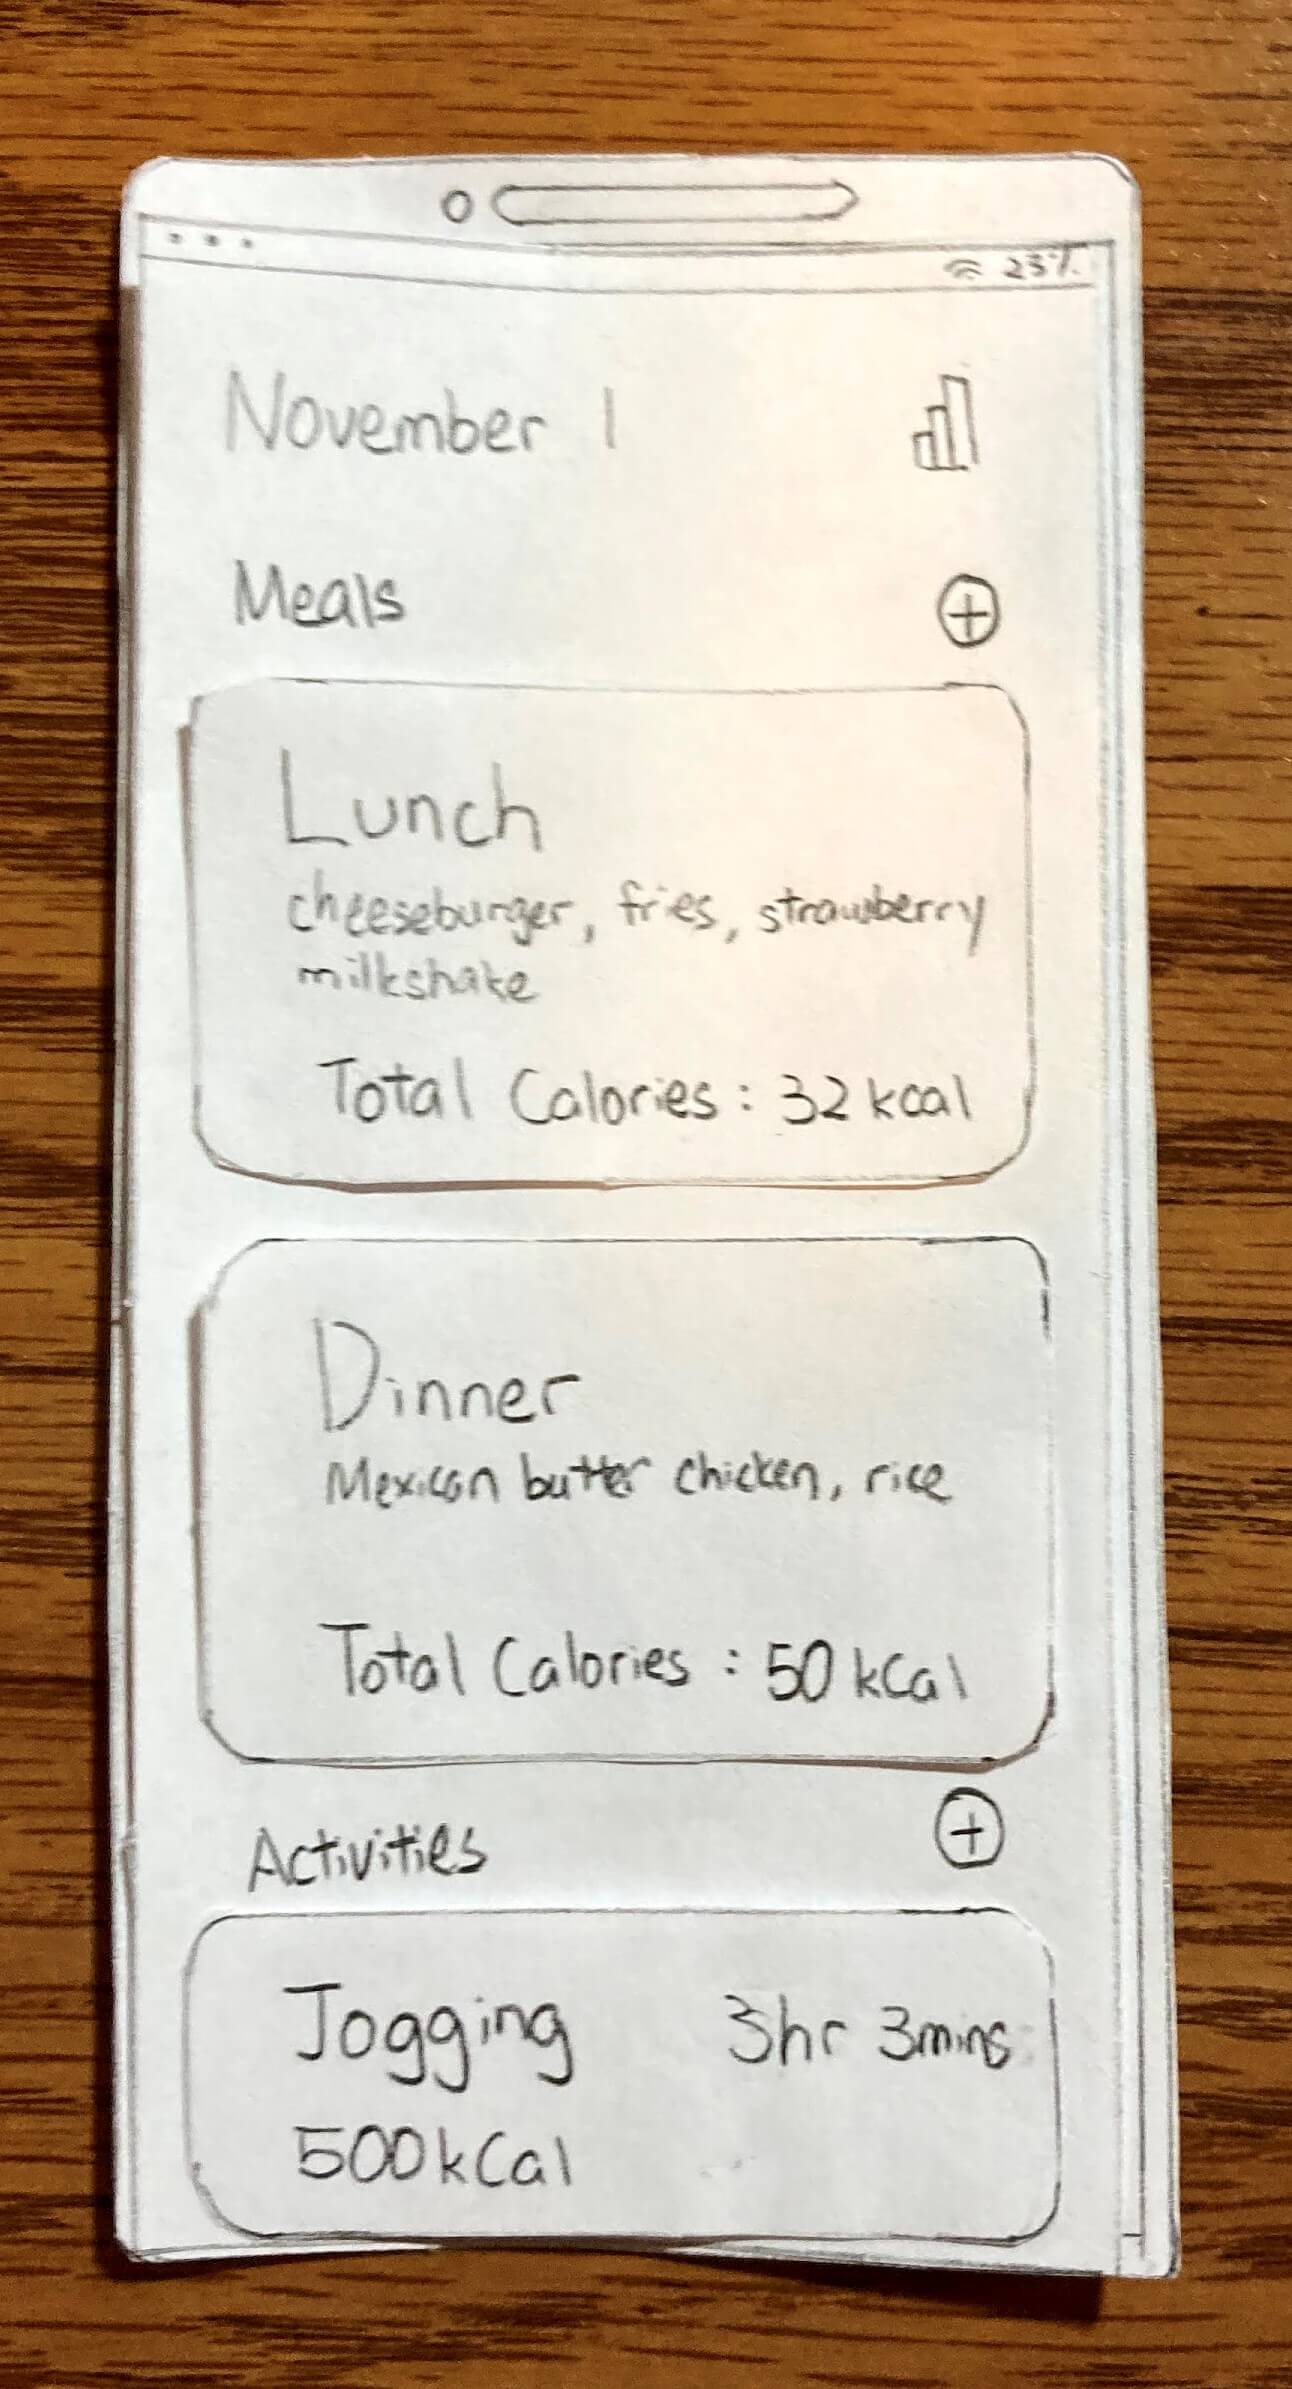 23%
November 1
Meals
Lunch
cheeseburger, fries, strawberry
milkshake
Total Calories : 32 kcal
Dinner
Mexican butter chicken, rice
Total Calories : 50 kCal
Activities
Jogging 3hr 3mins
500 kCal